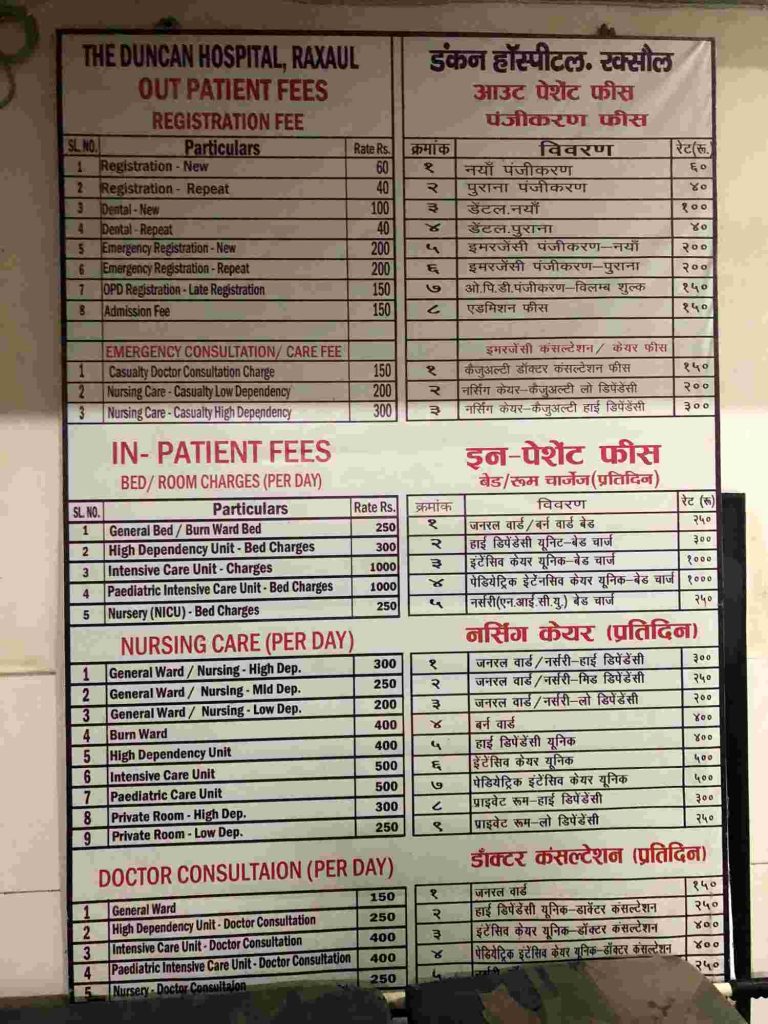 THE DUNCAN HOSPITAL, RAXAUL
OUT PATIENT FEES
REGISTRATION FEE
SL. NO. Particulars Rate Rs.
1 Registration - New 60
2 Registration - Repeat 40
3 Dental - New 100
4 Dental - Repeat 40
5 Emergency Registration - New 200
6 Emergency Registration - Repeat 200
7 OPD Registration - Late Registration 150
8 Admission Fee 150
EMERGENCY CONSULTATION/ CARE FEE
1 Casualty Doctor Consultation Charge 150
2 Nursing Care - Casualty Low Dependency 200
3 Nursing Care - Casualty High Dependency 300
IN- PATIENT FEES
BED/ ROOM CHARGES (PER DAY)
SL. NO. Particulars Rate Rs.
1 General Bed / Burn Ward Bed 250
2 High Dependency Unit - Bed Charges 300
3 Intensive Care Unit - Charges 1000
4 Paediatric Intensive Care Unit - Bed Charges 1000
5 Nursery (NICU) - Bed Charges 250
NURSING CARE (PER DAY)
1 General Ward / Nursing - High Dep. 300
2 General Ward / Nursing - MId Dep. 250
3 General Ward / Nursing - Low Dep. 200
4 Burn Ward 400
5 High Dependency Unit 400
6 Intensive Care Unit 500
7 Paediatric Care Unit 500
8 Private Room - High Dep. 300
9 Private Room - Low Dep. 250
DOCTOR CONSULTAION (PER DAY)
1 General Ward 150
2 High Dependency Unit - Doctor Consultation 250
3 Intensive Care Unit - Doctor Consultation 400
4 Paediatric Intensive Care Unit - Doctor Consultation 400
5 Nursery - Doctor Consultaion 250
डंकन हॉस्पीटल. रक्सौल
आउट पेशेंट फीस
पंजीकरण फीस
क्रमांक विवरण रेट(रू.
१ नयाँ पंजीकरण ६०
२ पुराना पंजीकरण ४०
३ डेंटल.नयाँ १००
४ डेंटल.पुराना ४०
५ इमरजेंसी पंजीकरण–नयाँ २००
६ इमरजेंसी पंजीकरण–पुराना २००
७ ओ.पि.डी.पंजीकरण–विलम्ब शुल्क १५०
८ एडमिशन फीस १५०
इमरजेंसी कंसल्टेशन/ केयर फीस
१ कैजुअल्टी डॉक्टर कंसल्टेशन फीस १५०
२ नर्सिंग केयर–कैजुअल्टी लो डिपेंडेंसी २००
३ नर्सिंग केयर–कैजुअल्टी हाई डिपेंडेंसी ३००
इन-पेशेंट फीस
बेड/रूम चार्जेज(प्रतिदिन)
क्रमांक विवरण रेट (रू)
१ जनरल वार्ड/बर्न वार्ड बेड २५०
२ हाई डिपेंडेसी यूनिट-बेड चार्ज ३००
३ इंटेंसिव केयर यूनिक-बेड चार्ज १०००
४ पेडियेट्रिक इंटेनसिव केयर यूनिक-बेड चार्ज १०००
५ नर्सरी(एन.आई.सी.यु.) बेड चार्ज २५०
नर्सिंग केयर (प्रतिदिन)
१ जनरल वार्ड/नर्सरी-हाई डिपेंडेंसी ३००
२ जनरल वार्ड/नर्सरी-मिड डिपेंडेंसी २५०
३ जनरल वार्ड/नर्सरी–लो डिपेंडेंसी २००
४ बर्न वार्ड ४००
५ हाई डिपेंडेंसी यूनिक ४००
६ इंटेंसिव केयर यूनिक ५००
७ पेडियेट्रिक इंटेंसिव केयर यूनिक ५००
८ प्राइवेट रूम-हाई डिपेंडेंसी ३००
९ प्राइवेट रूम-लो डिपेंडेंसी २५०
डॉक्टर कंसल्टेशन (प्रतिदिन)
१ जनरल वार्ड १५०
२ हाई डिपेंडेंसी यूनिक–डाक्टर कंसल्टेशन २५०
३ इंटेंसिव केयर यूनिक–डॉक्टर कंसल्टेशन ४००
४ पेडियेट्रिक इंटेंसिव केयर यूनिक-डॉक्टर कंसल्टेशन ४००
५ २५०